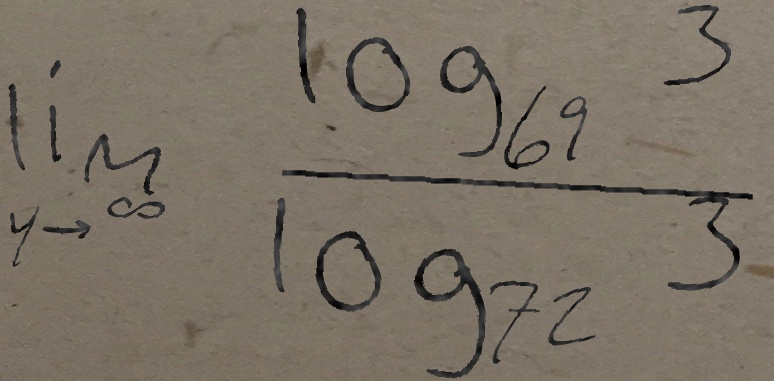 \lim_{y \to \infty} \frac{\log_{69} 3}{\log_{72} 3}